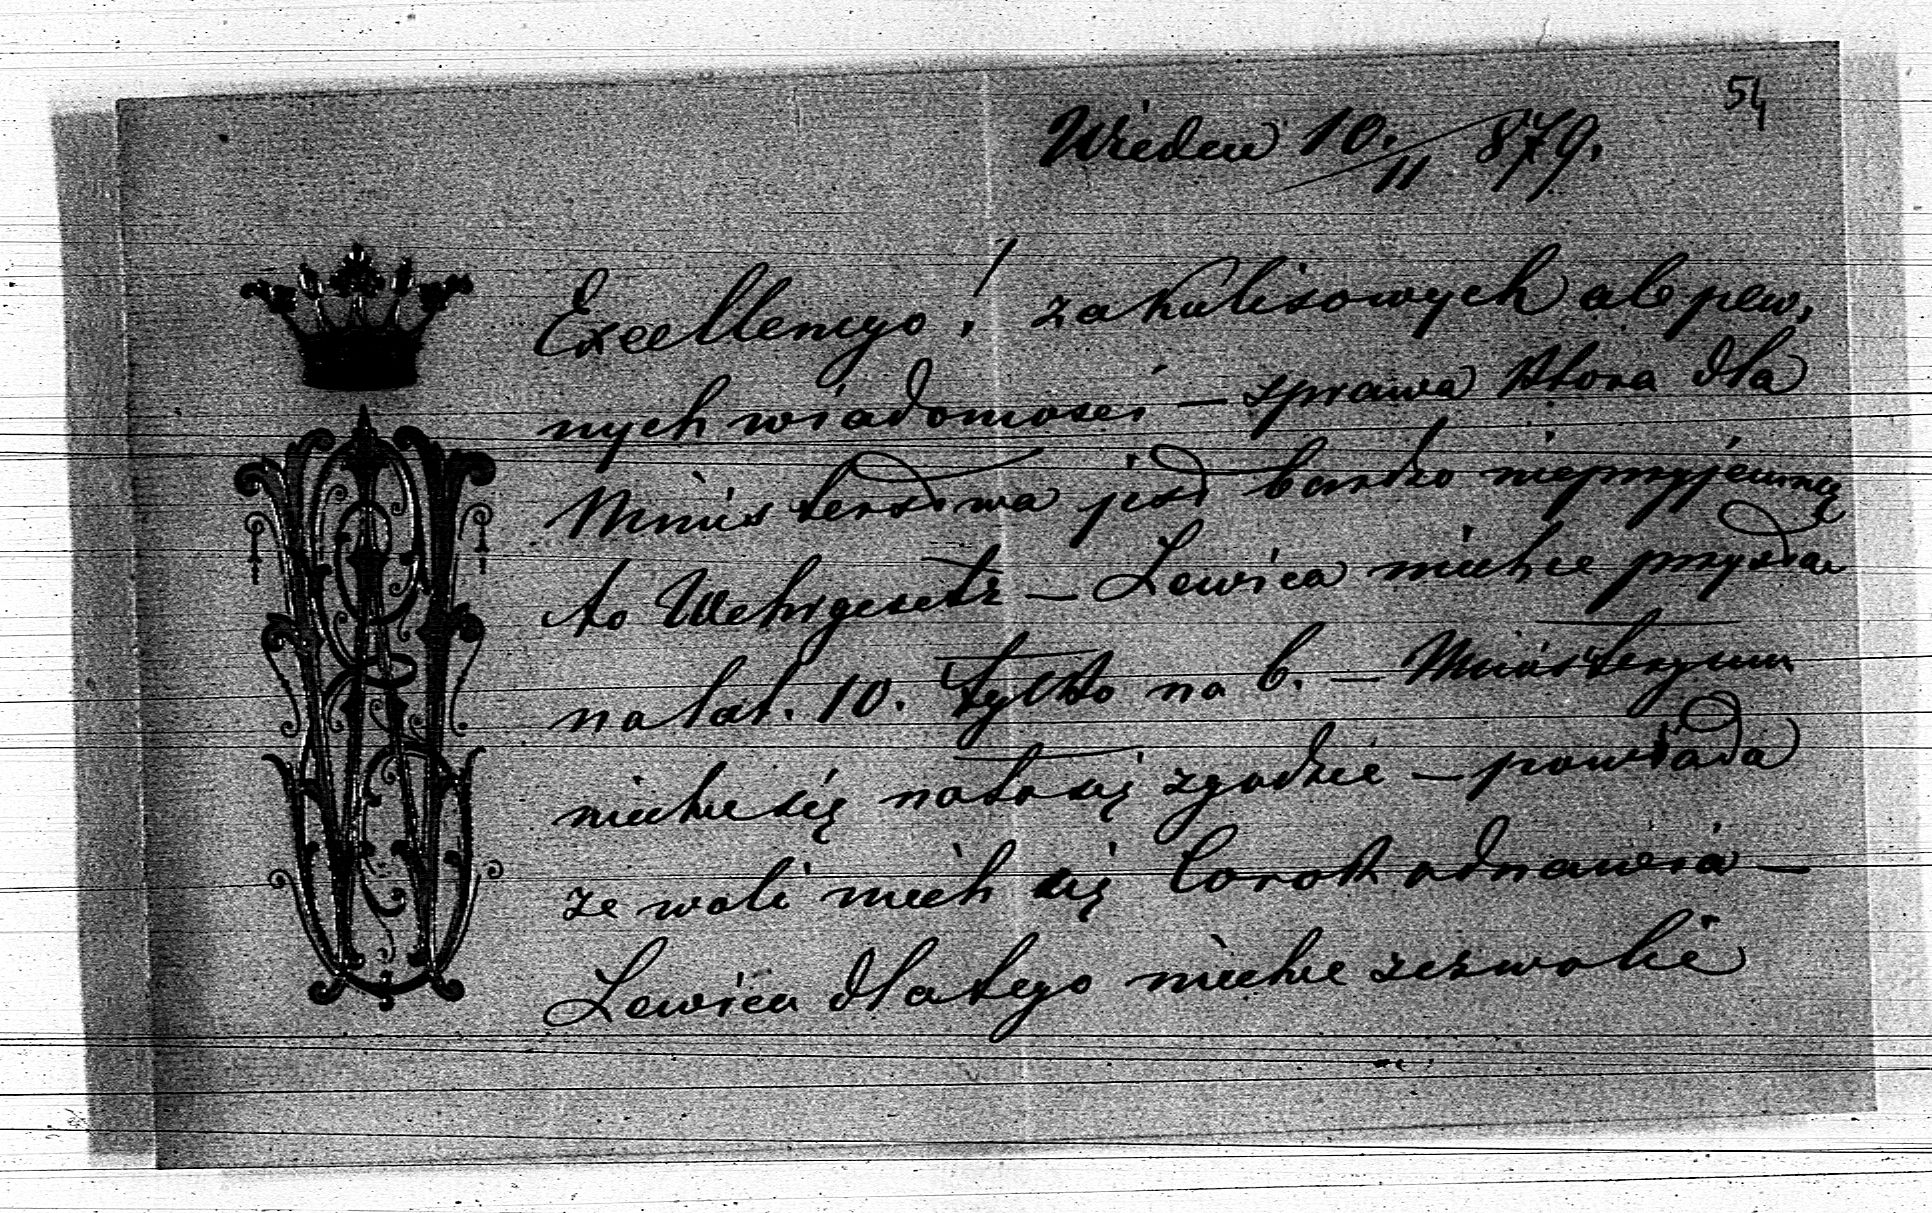 54
Wiedeń 10./11 879.
Excellencyo! zakulisowych ale pew,
nych wiadomości – sprawa która dla
Ministerstwa jest bardzo nieprzyjemną
to Wehrgesetz – Lewica niechce przystać
na lat. 10. tylko na 6. – Ministeryum
niechce się na to się zgodzić – powiada
że woli niech się corok odnawia –
Lewica dlatego niechce zezwolić